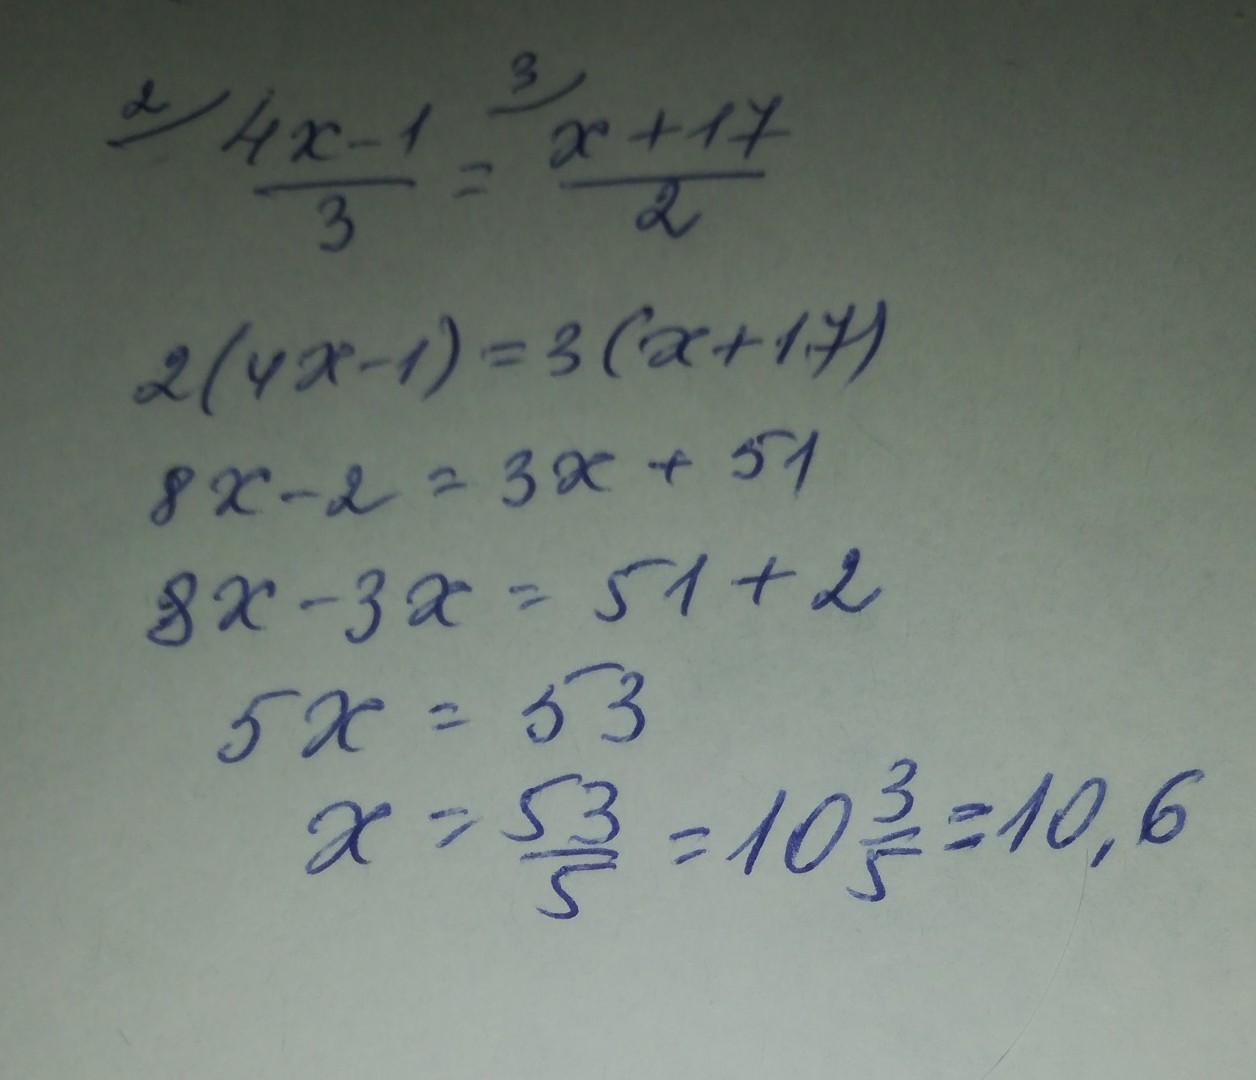 2/ 4x-1/3 = 3/ x+17/2
2(4x-1)=3(x+17)
8x-2=3x+51
8x-3x=51+2
5x=53
x=53/5=10 3/5=10,6